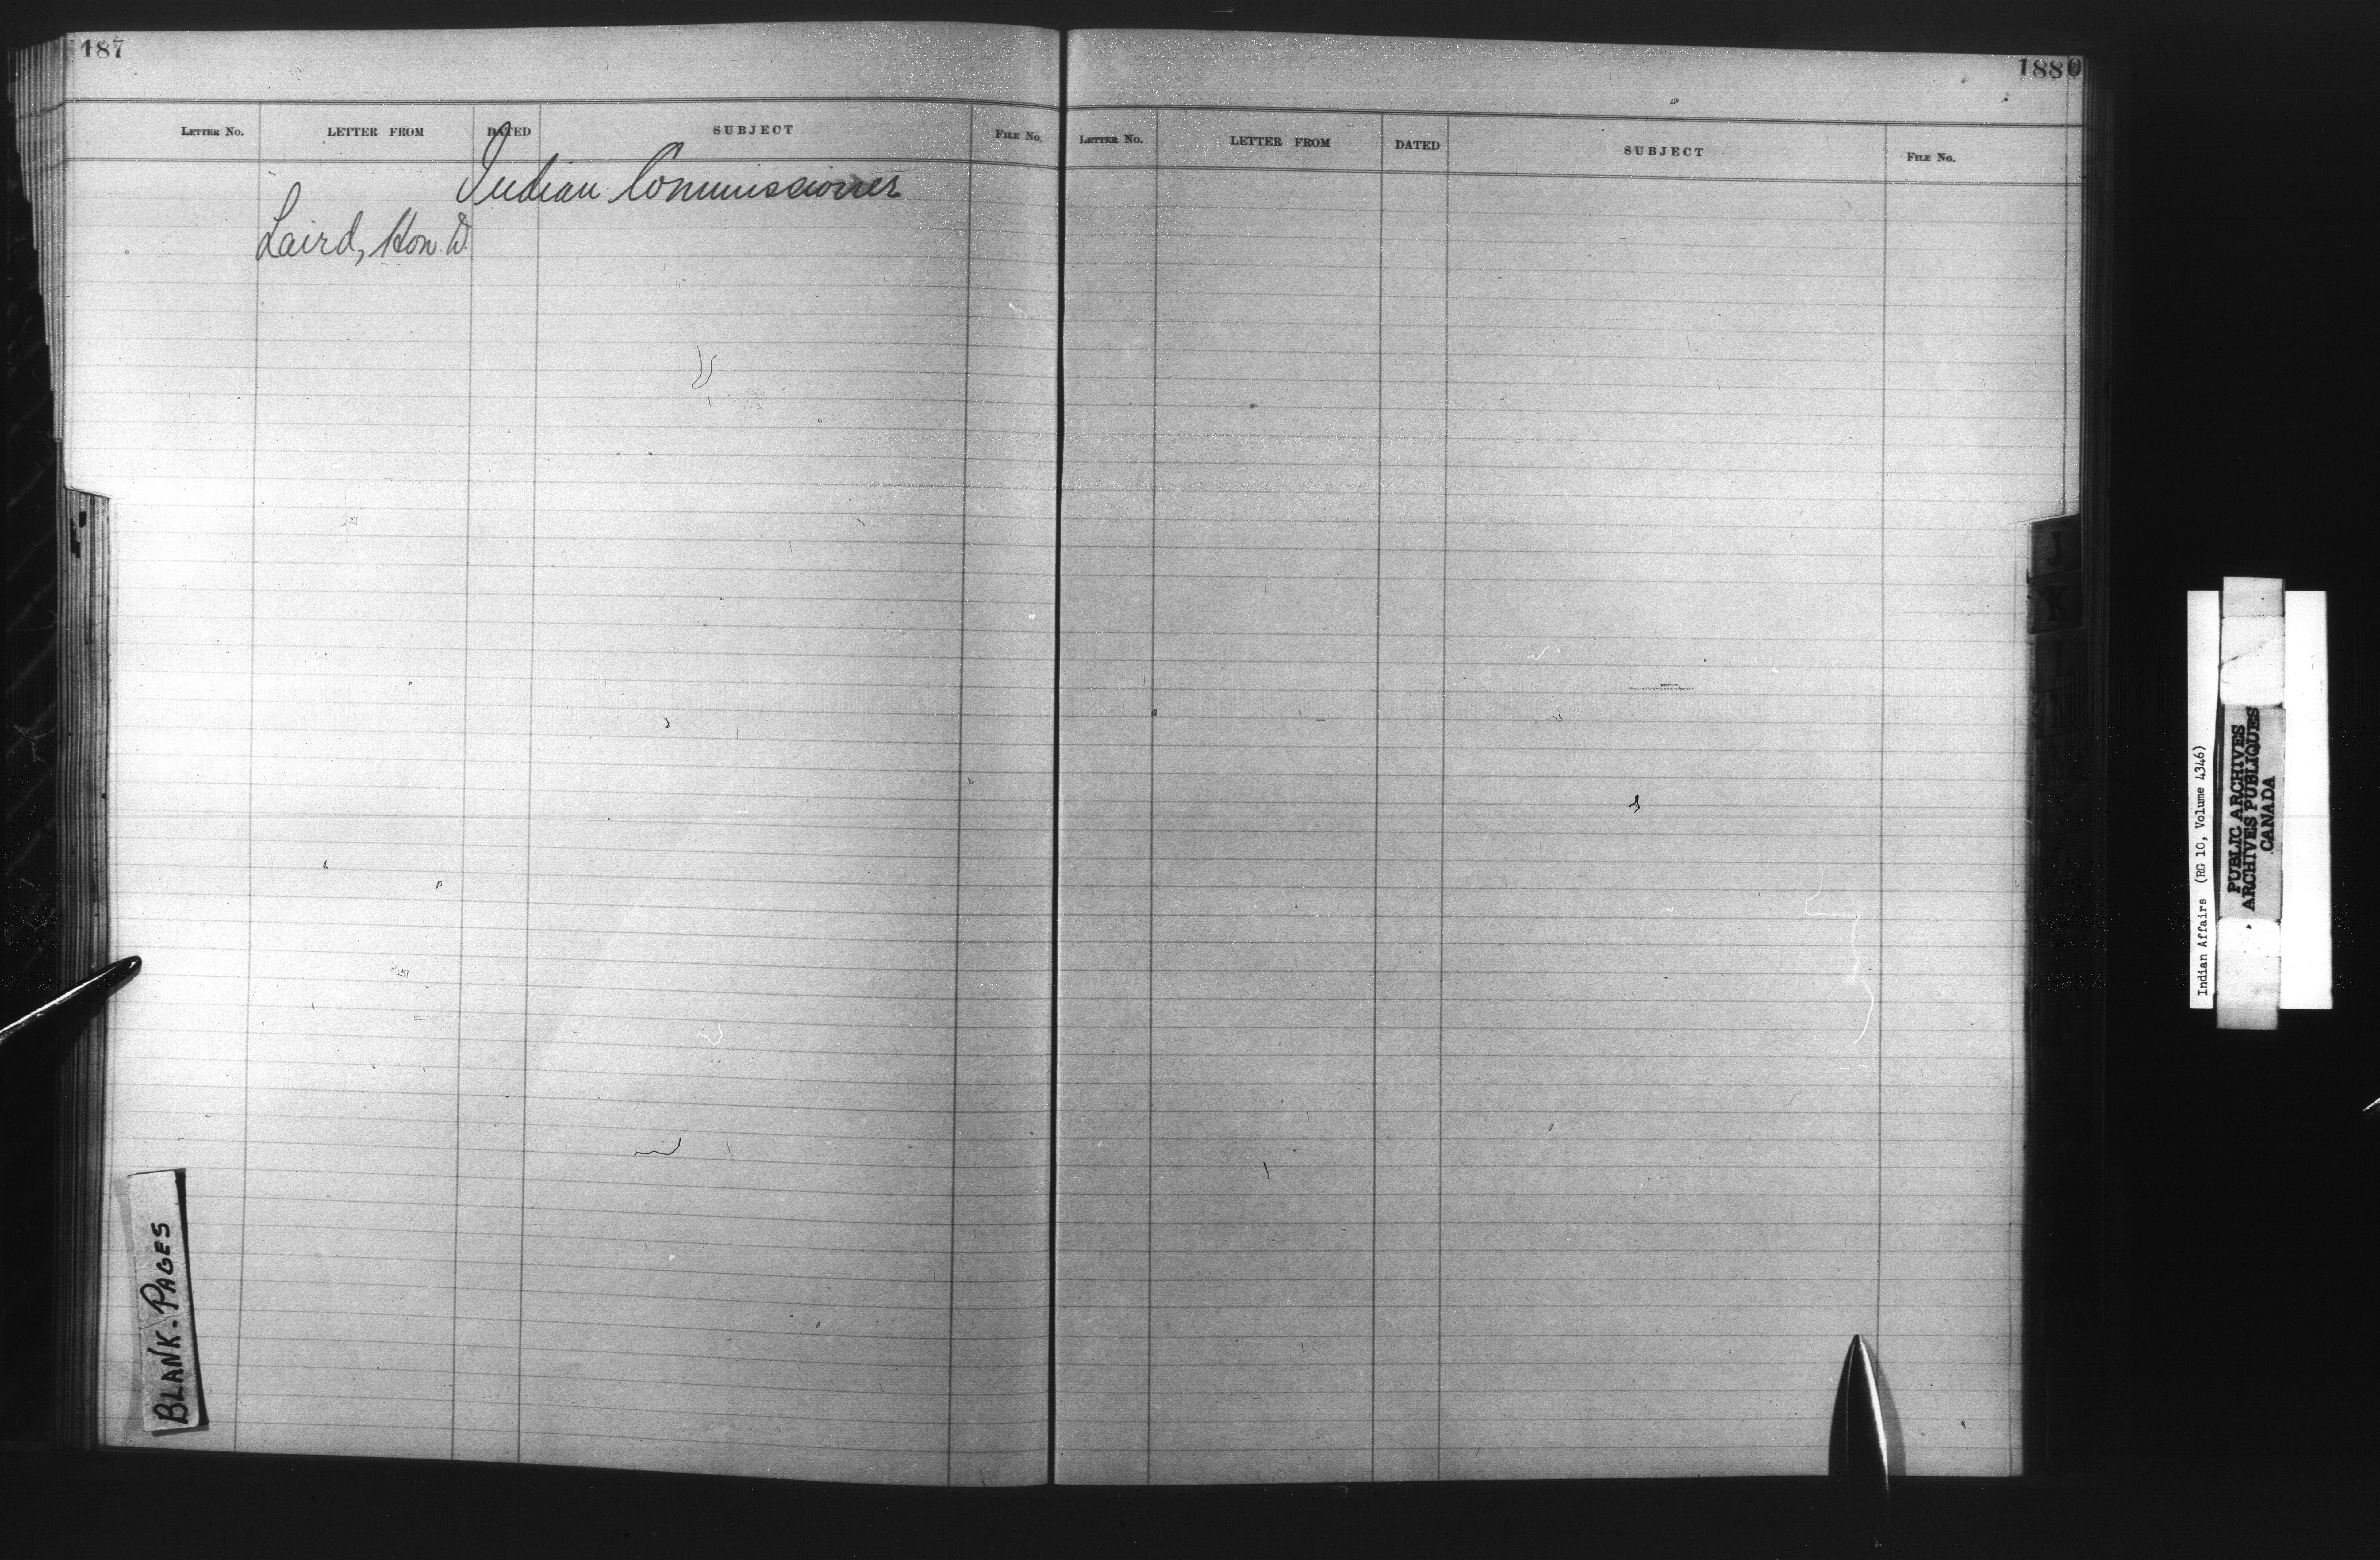 187
LETTER No. LETTER FROM DATED SUBJECT FILE No.
Indian Commissioner
Laird, Hon. D.
BLANK-PAGES
188
LETTER No. LETTER FROM DATED SUBJECT FILE No.
J
K
L
M
Indian Affairs (RG 10, Volume 4346)
PUBLIC ARCHIVES
ARCHIVES PUBLIQUES
CANADA